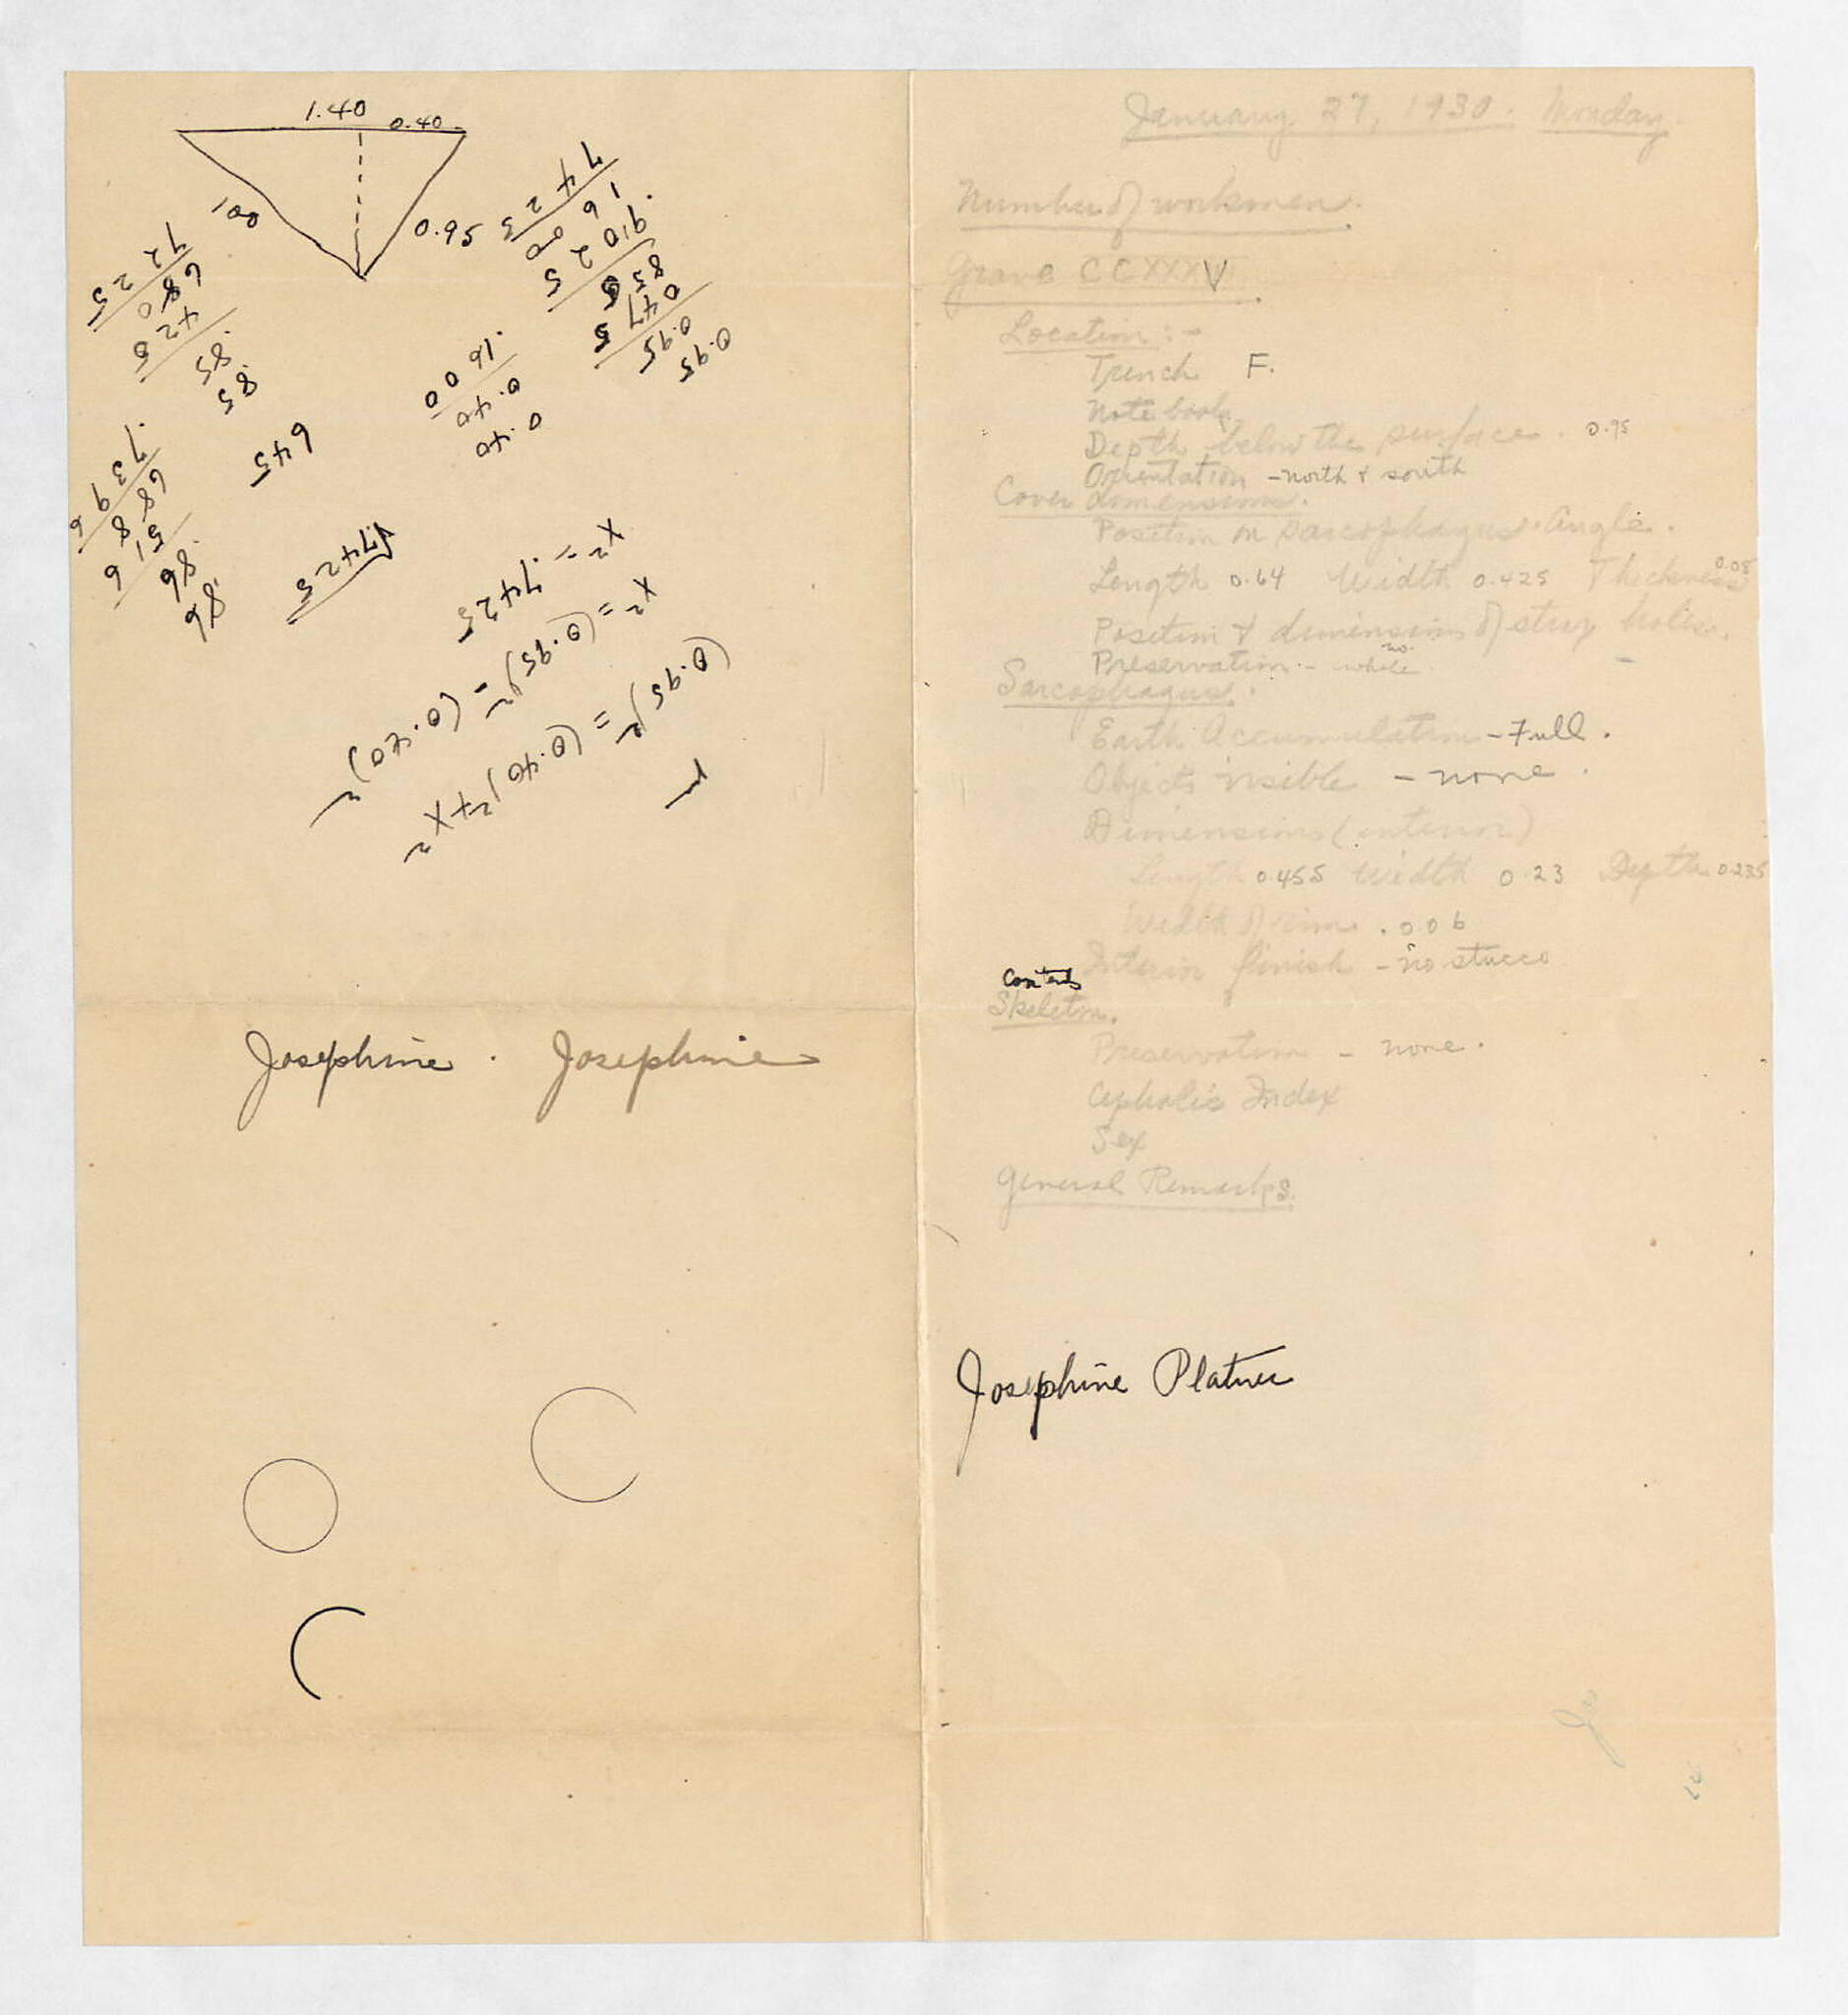 1.40 0.40
1.00
0.95
0.95
0.95
0475
855
.9025
1600
7425
0.40
0.40
.1600
.85
.85
425
680
7225
645
.86
.86
516
688
.7396
√.7425
(0.95)² = (0.40)² + X²
X² = (0.95)² - (0.40)²
X² = .7425
Josephine . Josephine
January 27, 1930. Monday.
Number of workmen.
Grave CCXXXV.
Location:-
Trench F.
Note book
Depth below the surface. 0.95
Orientation - north & south
Cover dimensions.
Position on sarcophagus. Angle.
Length 0.64 Width 0.425 Thickness 0.08
Position & dimensions of strap holes. -
Preservation. - whole
Sarcophagus.
Earth Accumulation - Full.
Objects visible - none.
Dimensions (interior)
Length 0.455 Width 0.23 Depth 0.235
Width of rim. 0.06
Interior finish - no stucco
Contents
Skeleton.
Preservation - none.
Cephalic Index
Sex
General Remarks.
Josephine Platner
Jos